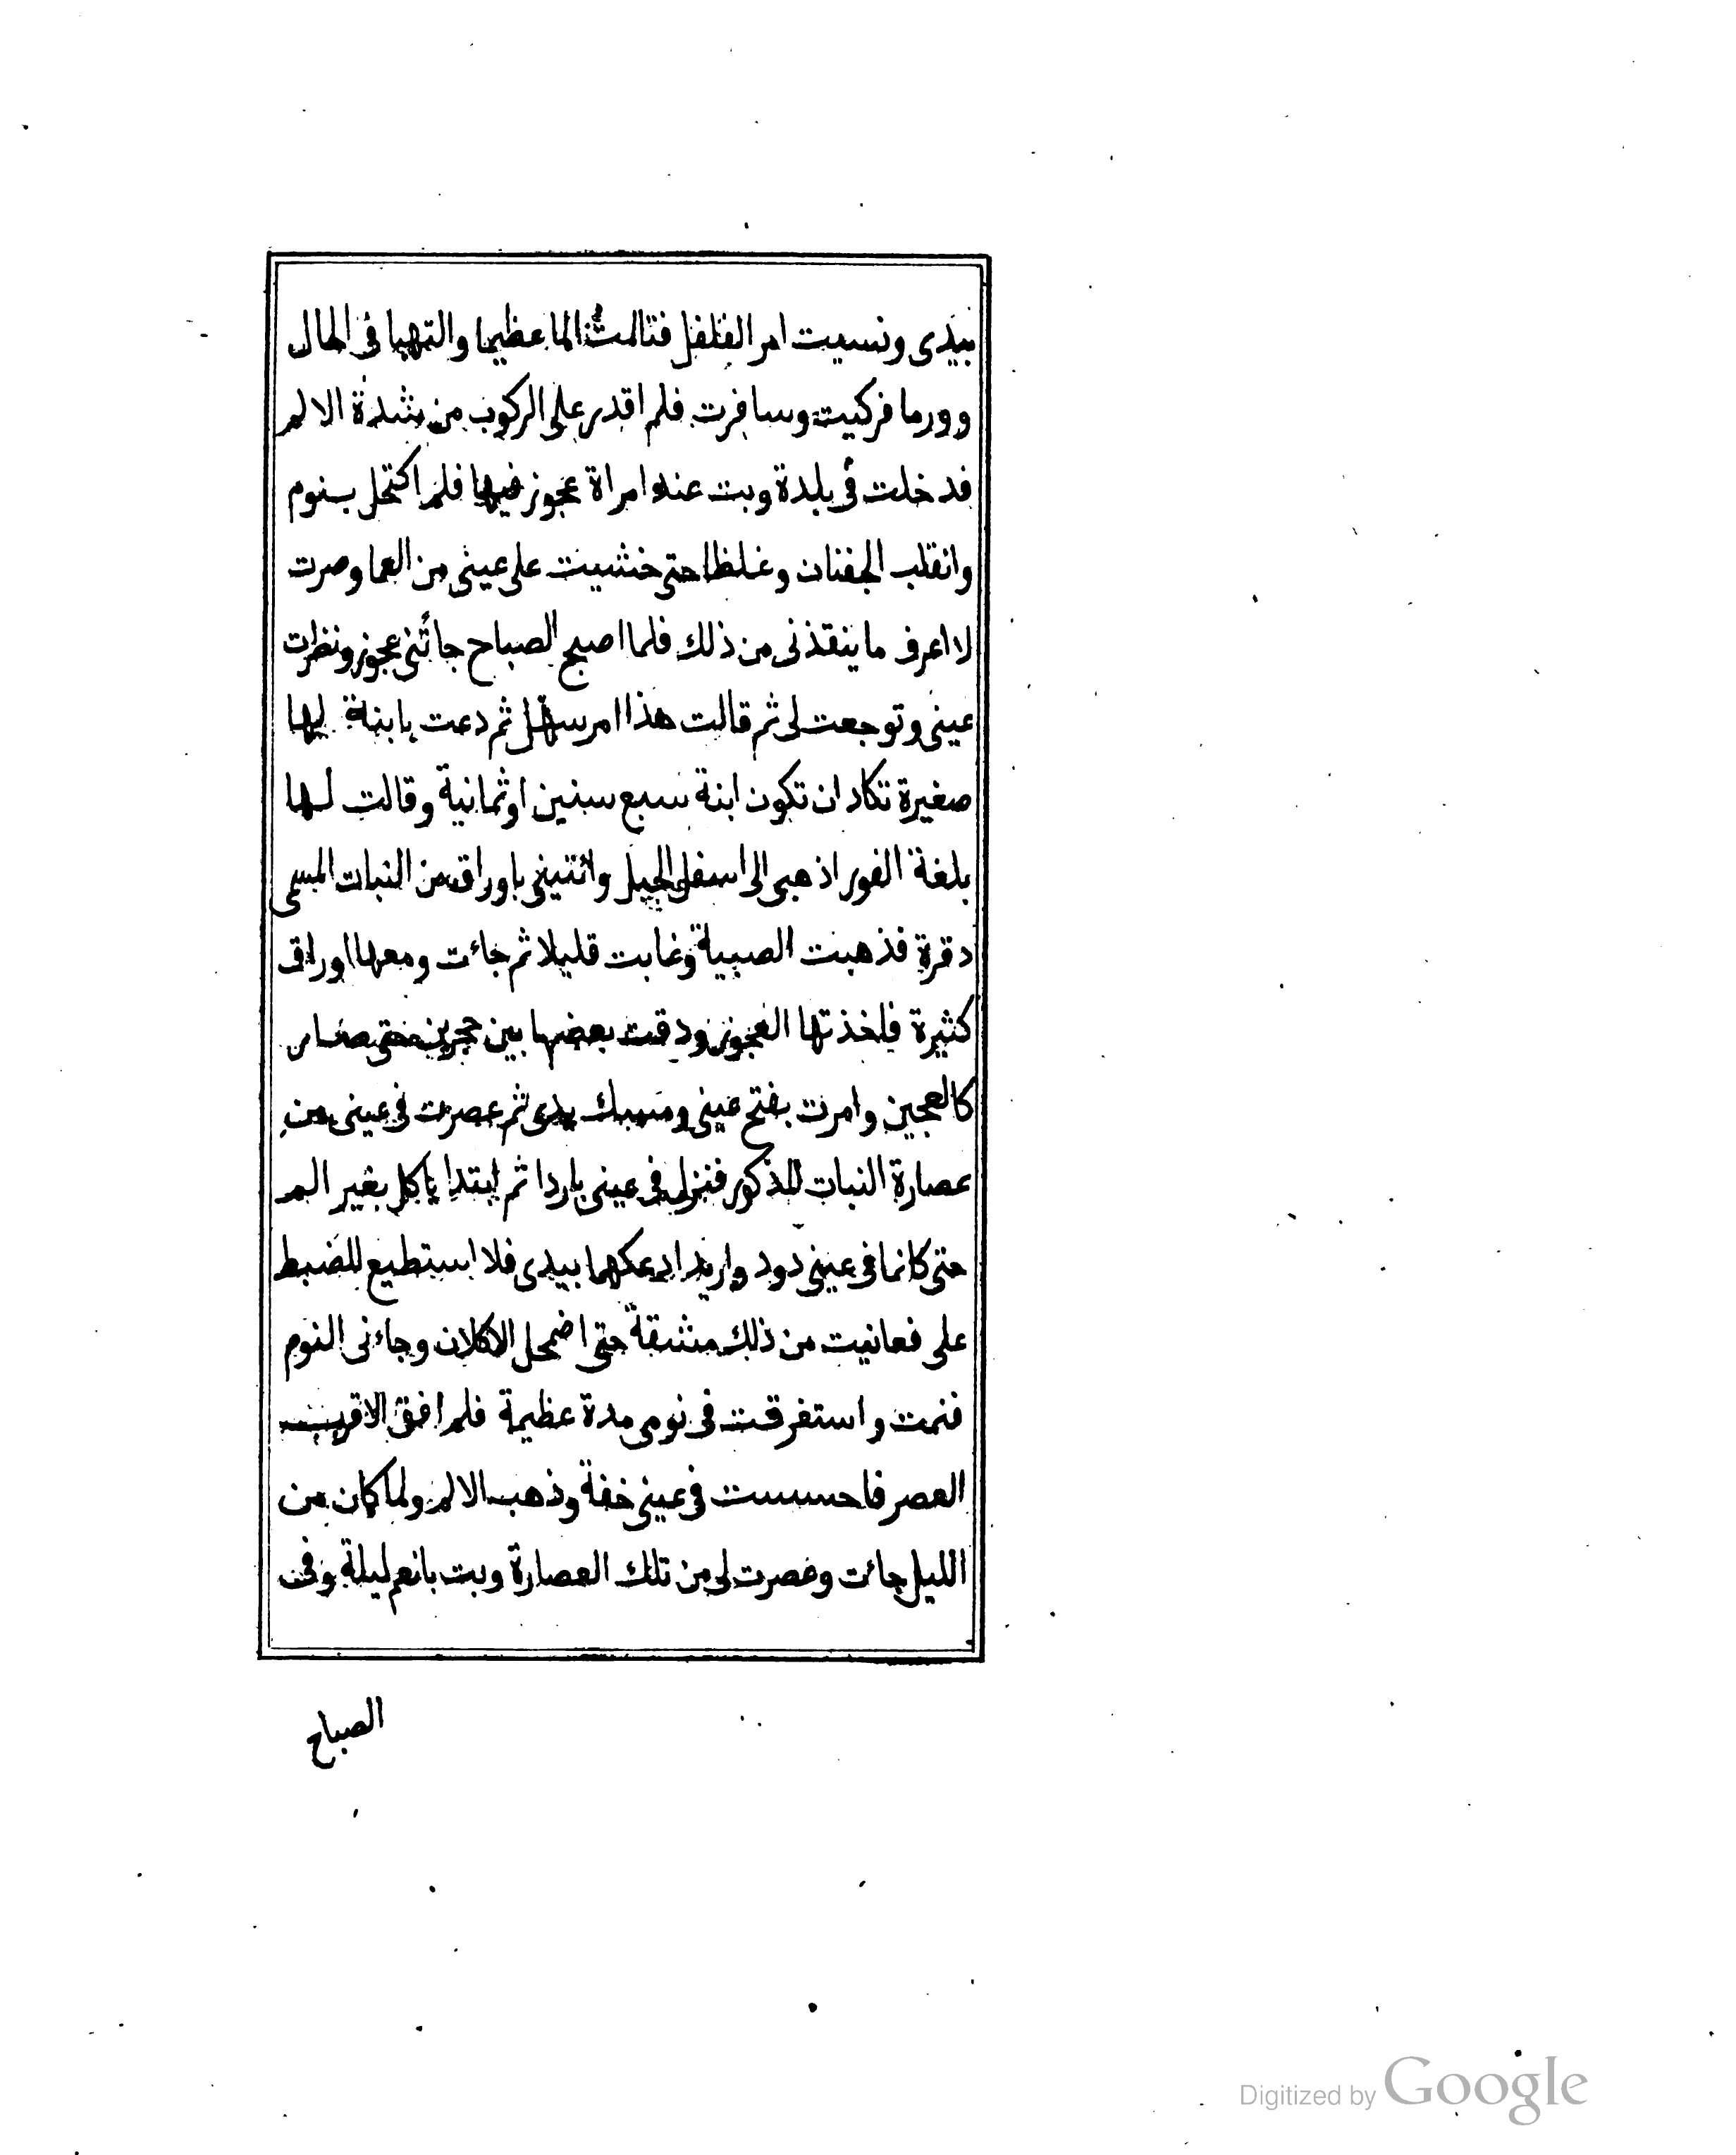 بيدى ونسيت امر الفلفل فتالمتُ الما عظيما والتهبا فى الحال
وورما فركبت وسافرت فلم اقدر على الركوب من شدة الالم
فدخلت فى بلدة وبت عند امراة عجوز فيها فلم اكتحل بنوم
وانقلب الجفنان وغلظا حتى خشيت على عينى من العما وصرت
لا اعرف ما ينقذنى من ذلك فلما اصبح الصباح جائتنى عجوز ونظرت
عينى وتوجعت لى ثم قالت هذا امر سهل ثم دعت بابنة لها
صغيرة تكاد ان تكون ابنة سبع سنين او ثمانية وقالت لها
بلغة الفور اذهبى الى اسفل الجبل وائتينى باوراق من النبات المسمى
دقرة فذهبت الصبية وغابت قليلا ثم جائت ومعها اوراق
كثيرة فاخذتها العجوز ودقت بعضها بين حجرين حتى صار
كالعجين وامرت بفتح عينى ومسك يدى ثم عصرت فى عينى من
عصارة النبات المذكور فنزل فى عينى باردا ثم ابتدا ياكل بغير الم
حتى كانما فى عينى دود واريد ادعكهما بيدى فلا استطيع للضبط
على فعانيت من ذلك مشقة حتى اضمحل الاكلان وجاءنى النوم
فنمت واستغرقت فى نومى مدة عظيمة فلم افق الا قريب
العصر فاحسست فى عينى خفة وذهب الالم ولما كان من
الليل جائت وعصرت لى من تلك العصارة وبت بانعم ليلة وفى
الصباح
Digitized by Google